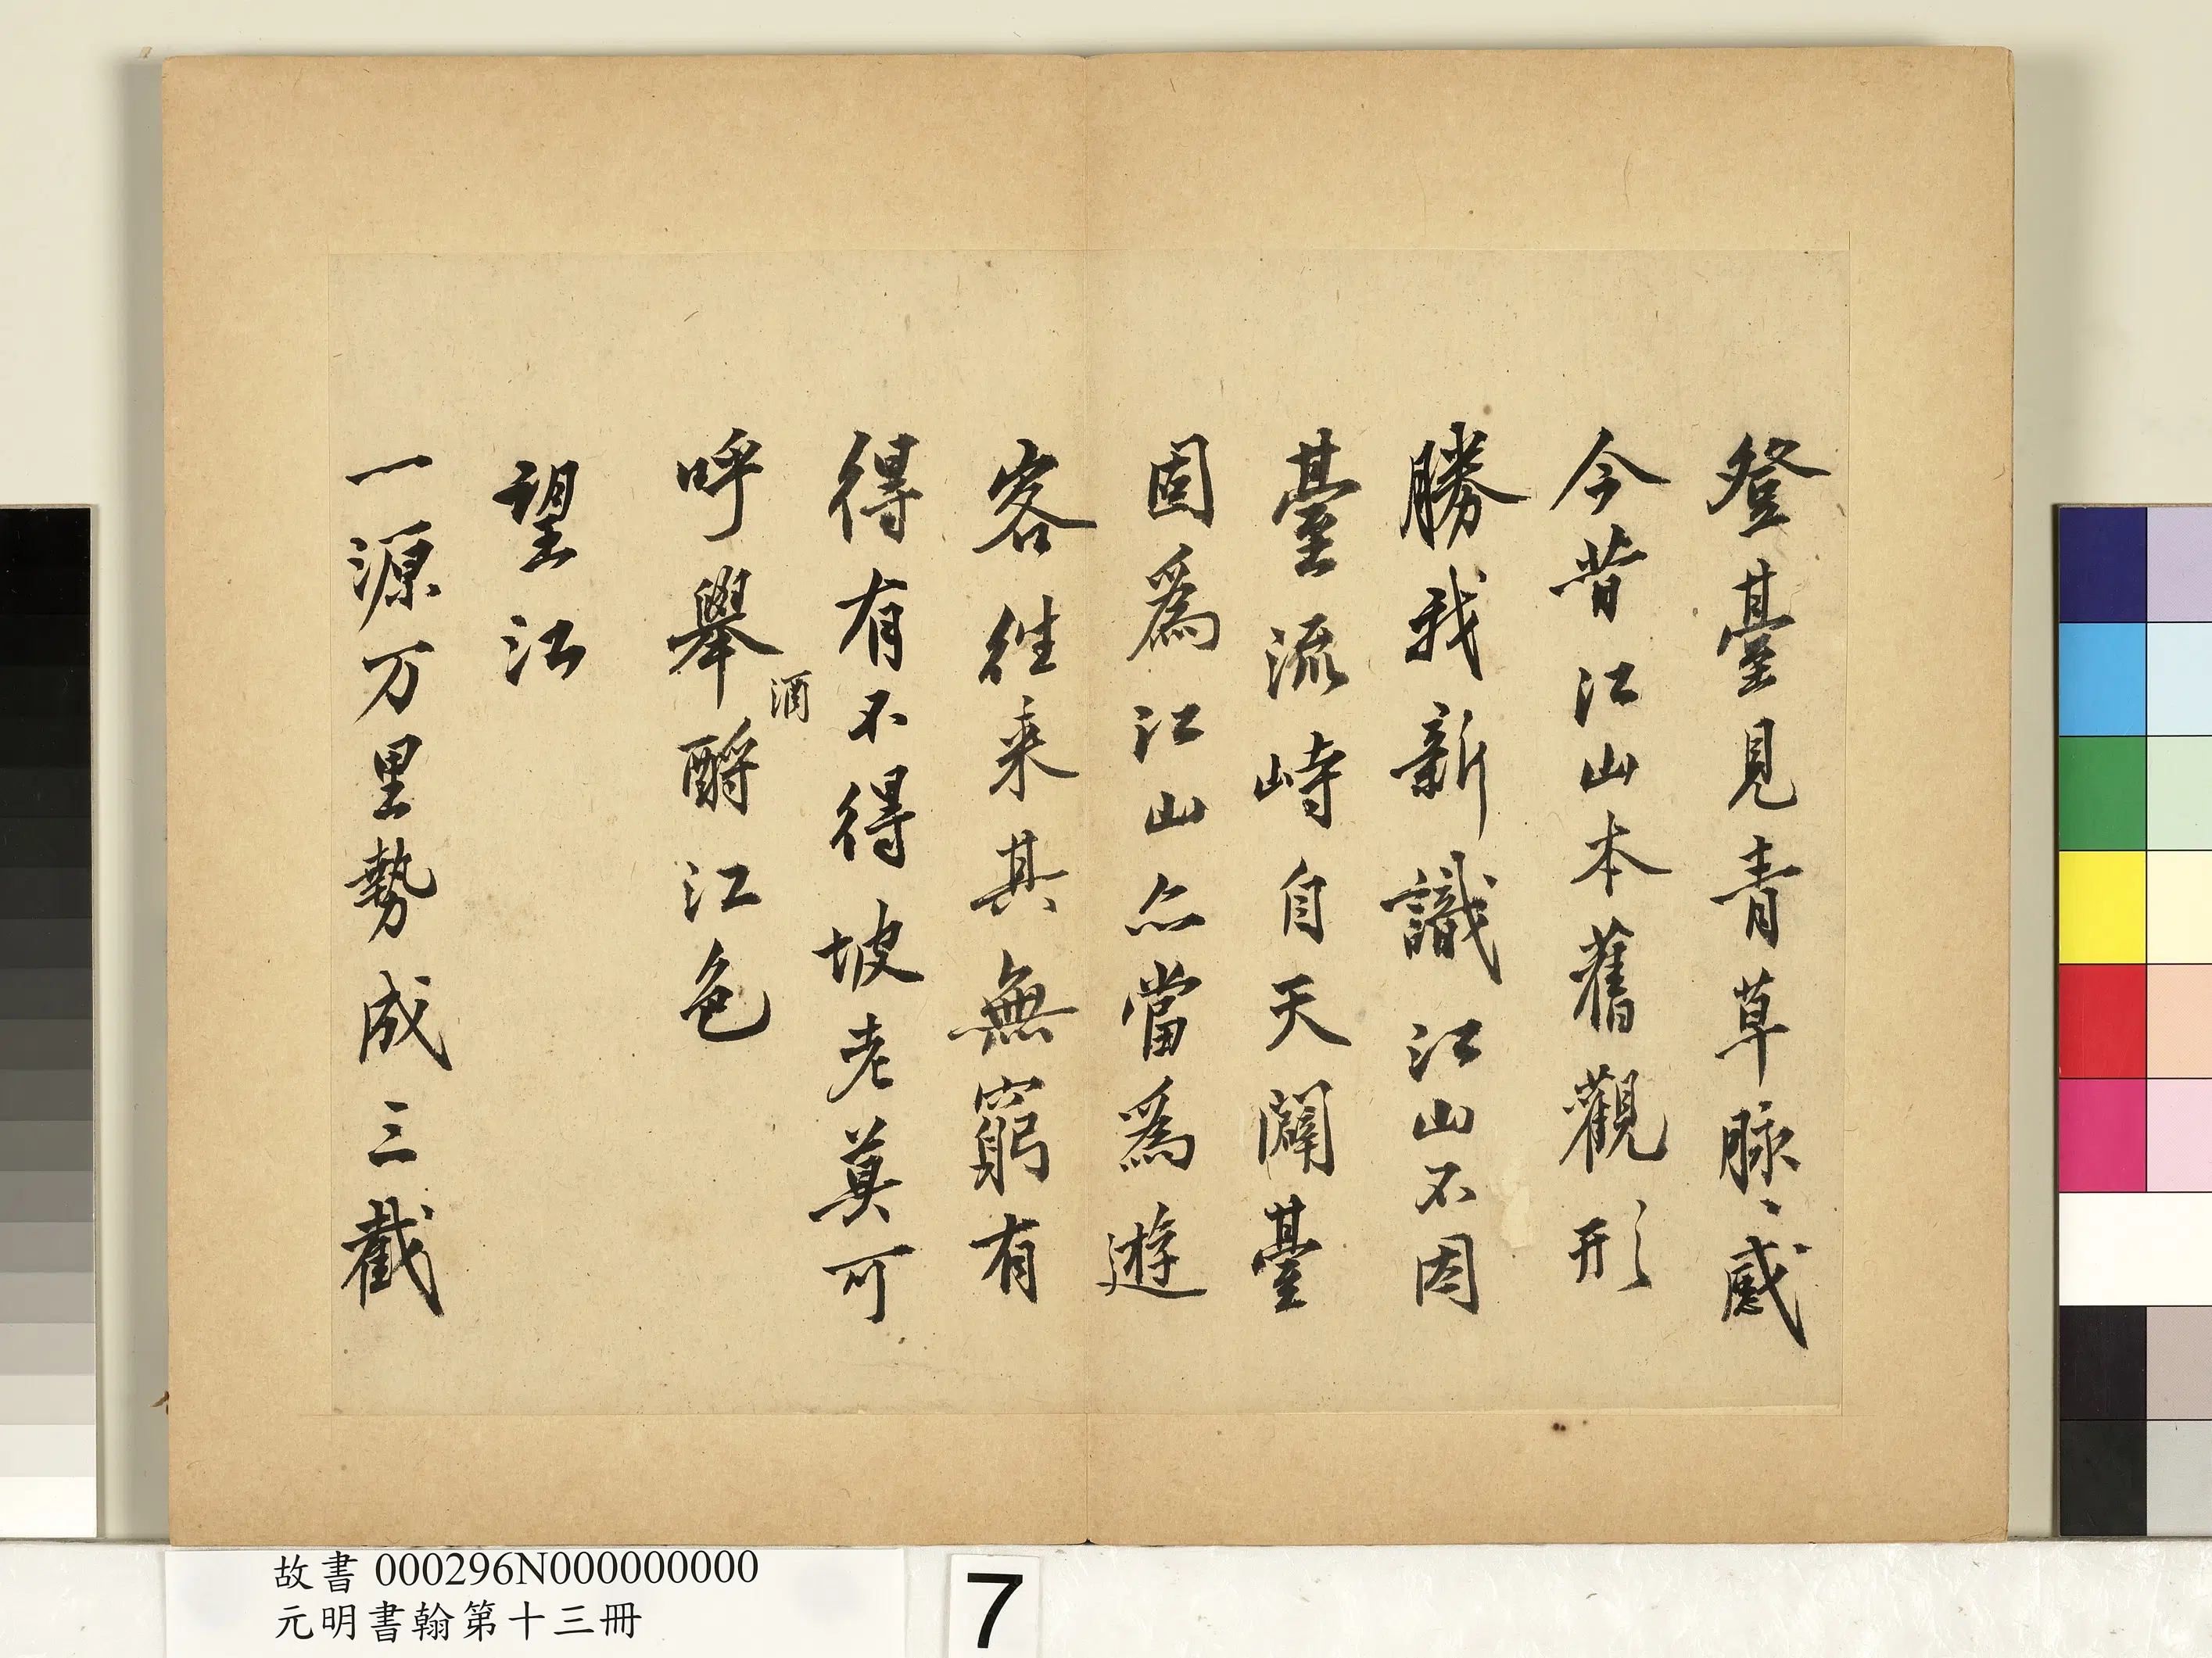 登臺見青草脉〻感
今昔江山本舊觀形
勝我新識江山不因
臺流峙自天闢臺
固爲江山亦當爲遊
客往来其無窮有
得有不得坡老莫可
呼舉酹江色
酒
望江
一源万里勢成三截
故書 000296N000000000
元明書翰第十三冊
7